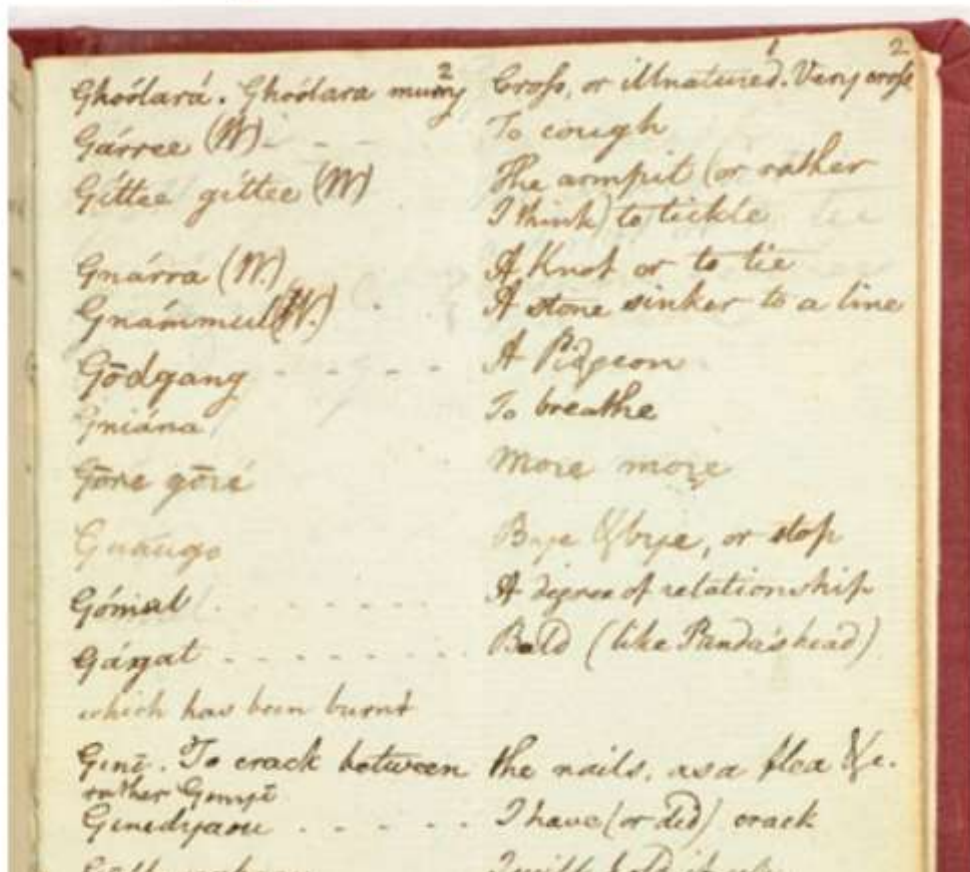 2
2 1
Ghoólará. Ghoólara murry Cross, or illnatured. Very cross
Gárree (W) - - - To cough
Gíttee gíttee (W) The armpit (or rather
I think) to tickle
Gnárra (W.) A Knot or to tie
Gnámmul (W.) A stone sinker to a line
Gōdgang - - - - - A Pidgeon
Gniána To breathe
Gōre gōré More more
Guaugo Bye & bye, or stop
Gómul . - - - - - - A degree of relationship
- - - - - - - - Bald (like Panda's head)
which has been burnt
To crack between the nails, as a flea &c.
rather
- - - - - I have (or did) crack